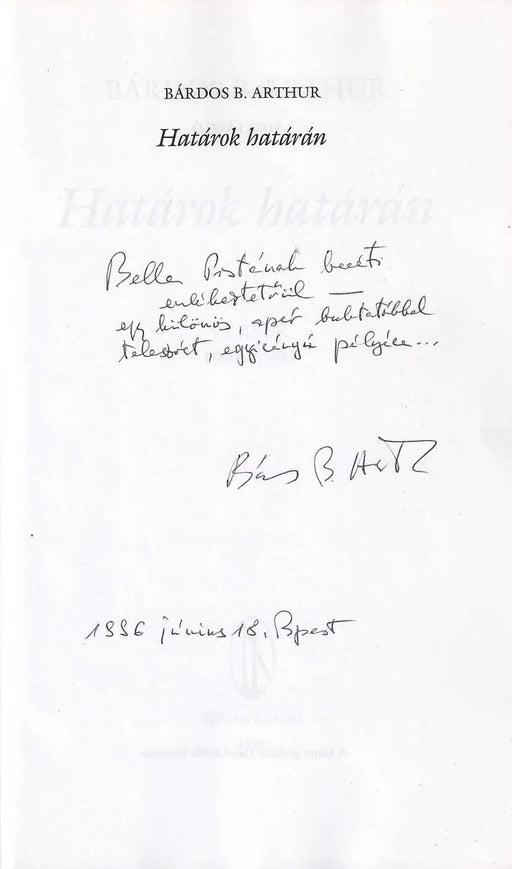 BÁRDOS B. ARTHUR
Határok határán
Bella Pistának baráti
emlékeztetőül —
egy különös, apró buktatókkal
teleszórt, egyirányú pályára...
Bárdos B. Arthur
1996 június 18. Bpest